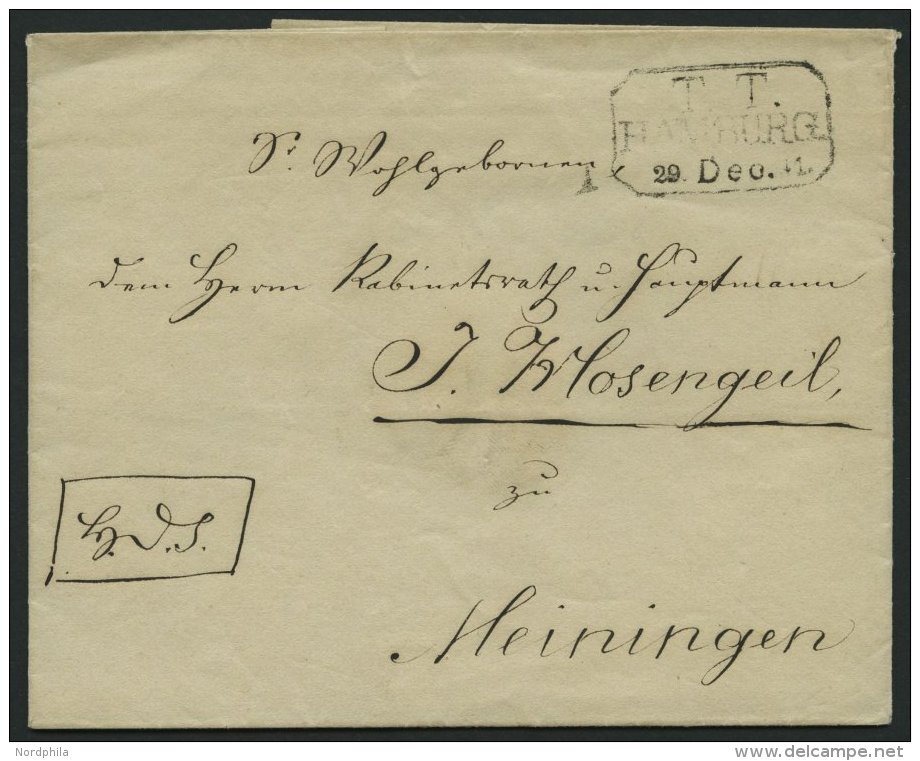 T. T.
HAMBURG.
29. Dec. 41.
Sr. Wohlgebornen
dem Herrn Kabinetsrath u. Hauptmann
J. Mosengeil,
zu
H.D.S.
Meiningen
Nordphila
www.delcampe.net